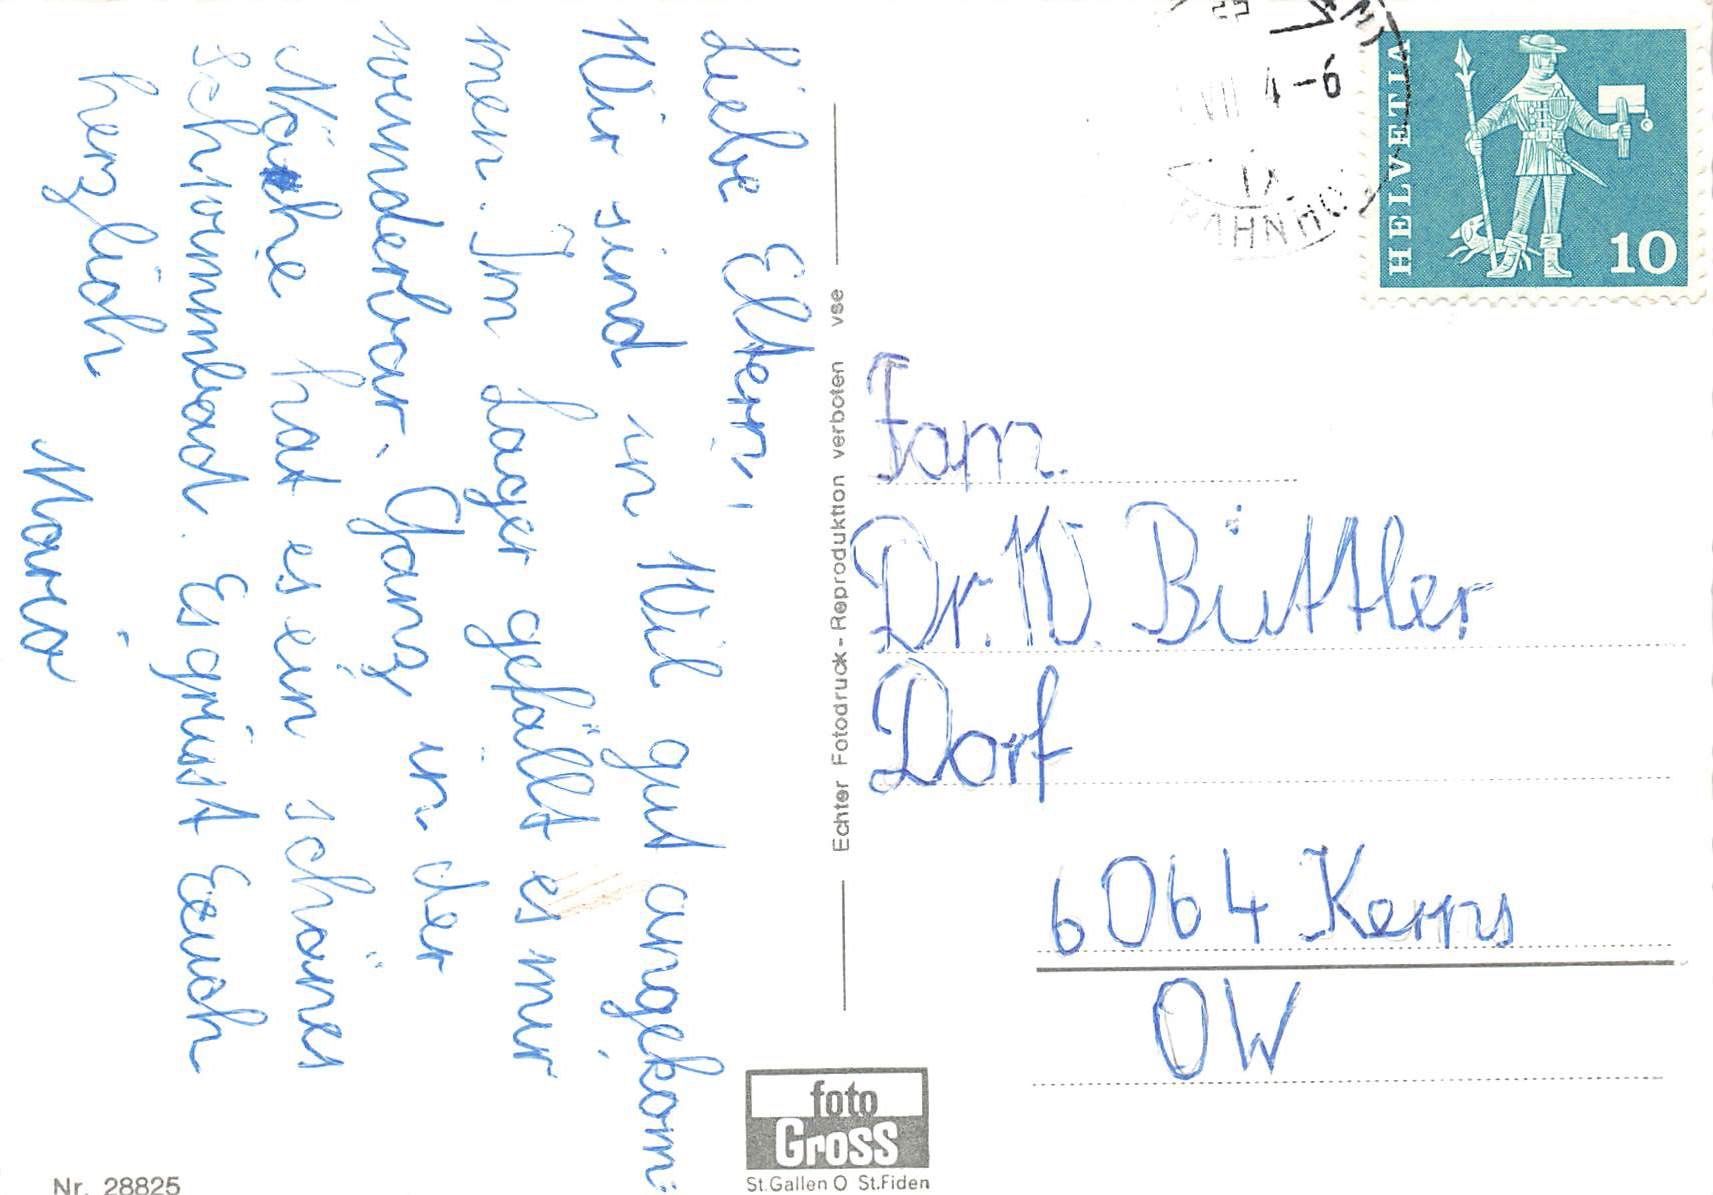 Liebe Eltern,
Wir sind in Wil gut angekom-
men. Im Lager gefällt es mir
wunderbar. Ganz in der
Nähe hat es ein schönes
Schwimmbad. Es grüsst Euch
herzlich
Maria
Nr. 28825
Echter Fotodruck - Reproduktion verboten vse
foto
Gross
St.Gallen O St.Fiden
VII 4-6
BAHNHOF
HELVETIA
10
Fam.
Dr. W. Büttler
Dorf
6064 Kerns
OW